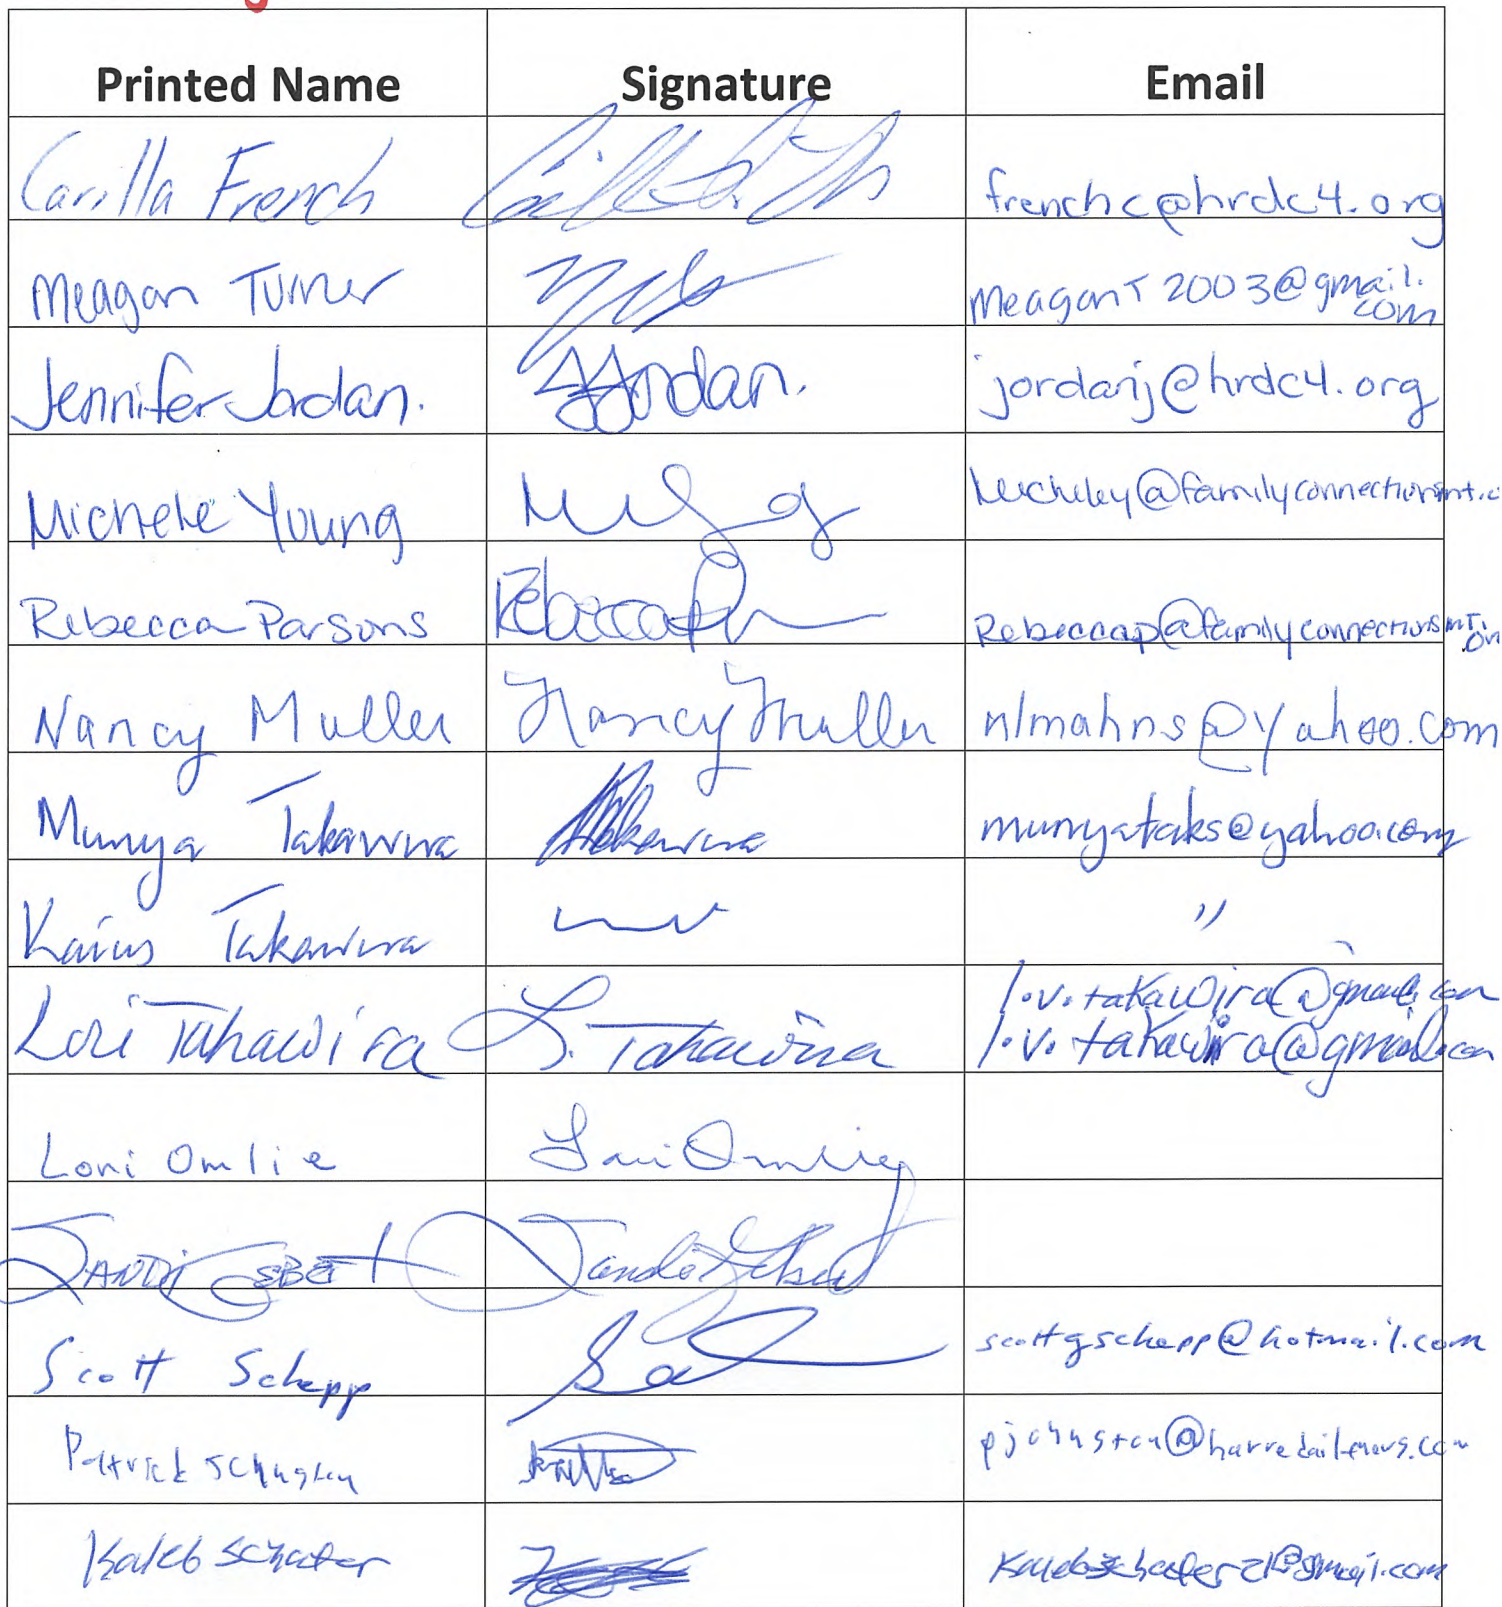 Printed Name Signature Email
Carilla French frenchc@hrdc4.org
Meagan Turner MeaganT2003@gmail.
com
Jennifer Jordan. JJordan. jordanj@hrdc4.org
Michele Young micheley@familyconnectionsmt.o
Rebecca Parsons Rebecca P Rebeccap@familyconnectionsmt.
or
Nancy Muller Nancy Muller nlmahns@yahoo.com
Munya Takawira Takawira munyataks@yahoo.com
Kaius Takawira "
l.v.takawira@gmail.com
Lori Takawira L. Takawira l.v.takawira@gmail.com
Loni Omlie Loni Omlie
Sandi Gebert Sandi Gebert
Scott Schepp scottgschepp@hotmail.com
Patrick Johnston pjohnston@havredailynews.com
Kaleb Schafer